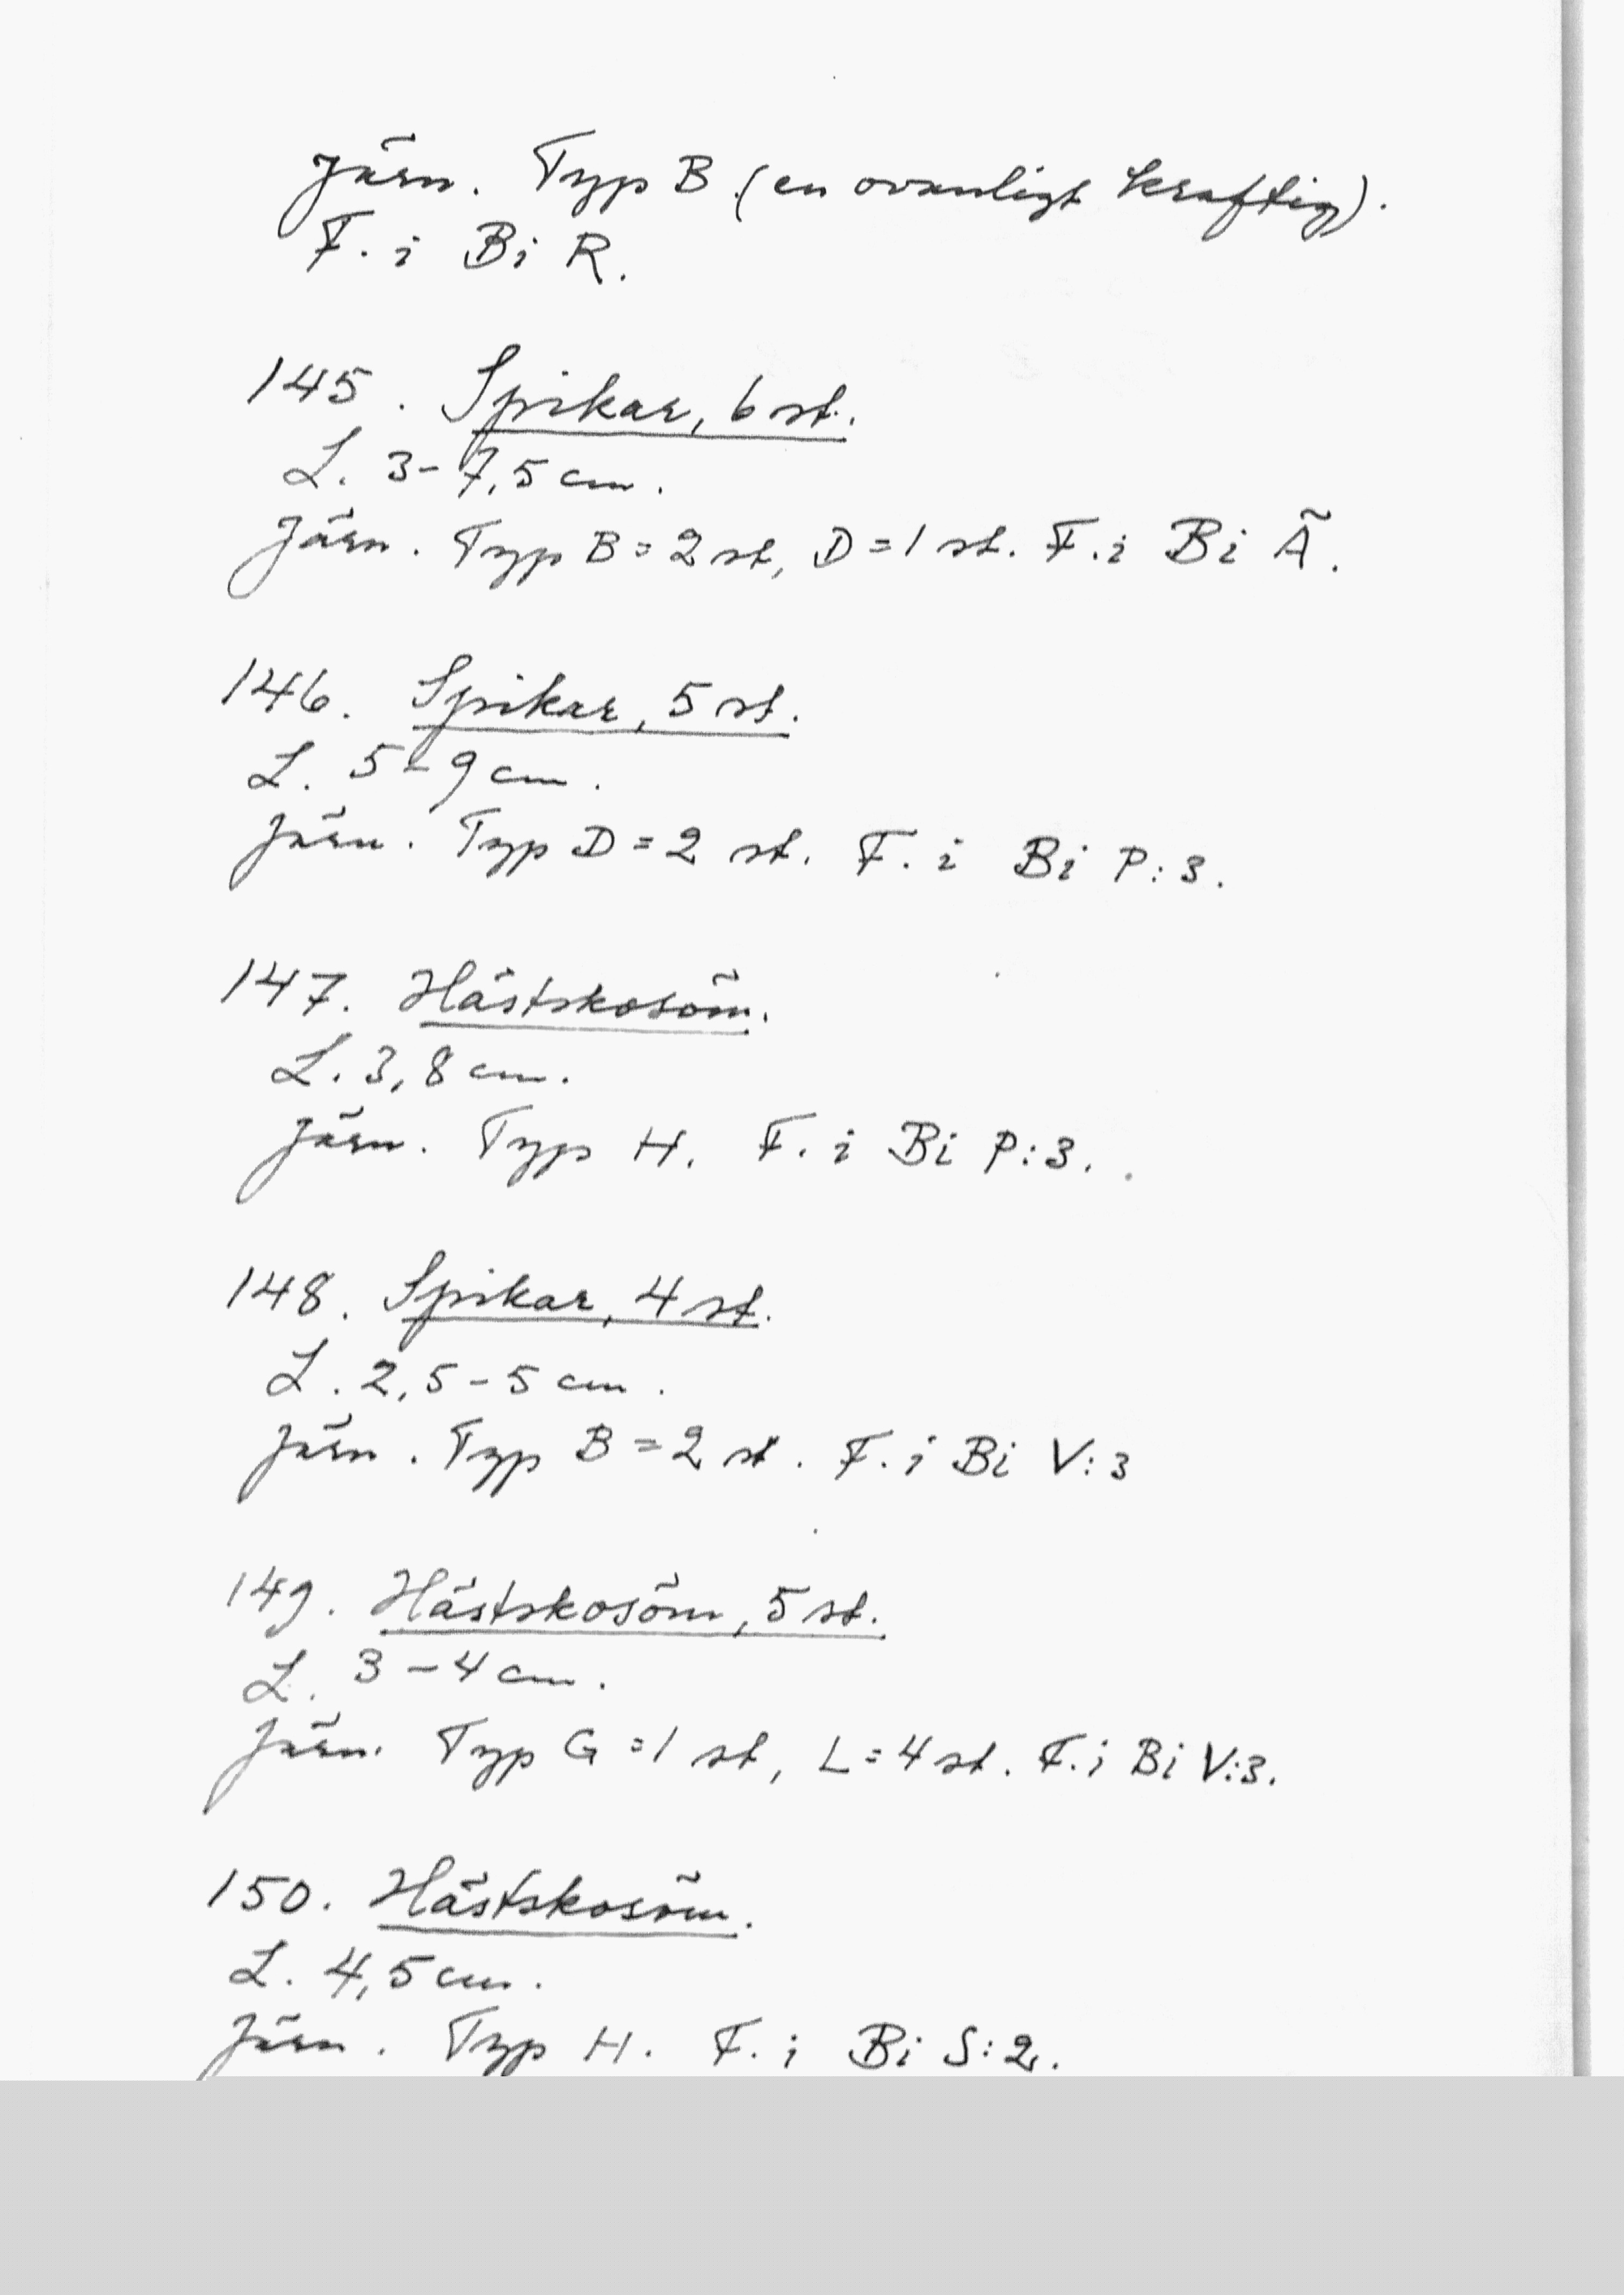 Järn. Typ B (en ovanligt kraftig).
F. i Bi R.
145. Spikar, 6 st.
L. 3-7,5 cm.
Järn. Typ B=2 st, D=1 st. F. i Bi Ä.
146. Spikar, 5 st.
L. 5-9 cm.
Järn. Typ D=2 st. F. i Bi P:3.
147. Hästskosöm.
L. 3,8 cm.
Järn. Typ H. F. i Bi P:3.
148. Spikar, 4 st.
L. 2,5-5 cm.
Järn. Typ B=2 st. F. i Bi V:3
149. Hästskosöm, 5 st.
L. 3-4 cm.
Järn. Typ G=1 st, L=4 st. F. i Bi V:3.
150. Hästskosöm.
L. 4,5 cm.
Järn. Typ H. F. i Bi S:2.